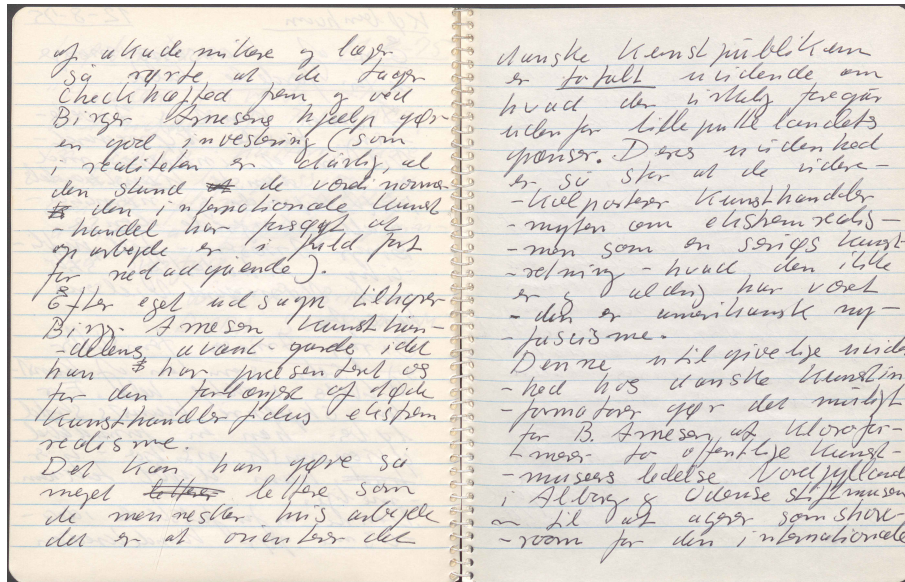 af akademikere og læger
så rørte at de tager
checkhæfted frem og ved
Birger Arnesens hjælp gør-
en god investering (som
i realiteten er dårlig, al
den stund de værdinormer
den internationale kunst
-handel har
oparbejde er i fuld fart
for nedadgående).
Efter eget udsagn tilhører
Birger Arnesen kunsthan-
-delens avant-garde idet
han har præsenteret os
for den forlængst afdøde
kunsthandler fidus ekstrem
realisme.
Det kan han gøre så
meget lettere som
de mennesker hvis arbejde
det er at orienterer det
danske kunstpublikum
er totalt uvidende om
hvad der virkelig foregår
udenfor lilleputtelandets
grænser. Deres uvidenhed
er så stor at de videre-
-kolporterer kunsthandler
-myten om ekstremrealis-
-men som en seriøs kunst-
-retning - hvad den ikke
er og aldrig har været
- den er amerikansk ny-
-fascisme.
Denne utilgivelige uviden
-hed hos danske kunstin
-formatorer gør det muligt
for B. Arnesen at klorofor-
-merer to offentlige kunst-
-museers ledelse Nordjylland
i Ålborg og Odense stiftmuseu
m til at agerer som show-
-room for den internationale